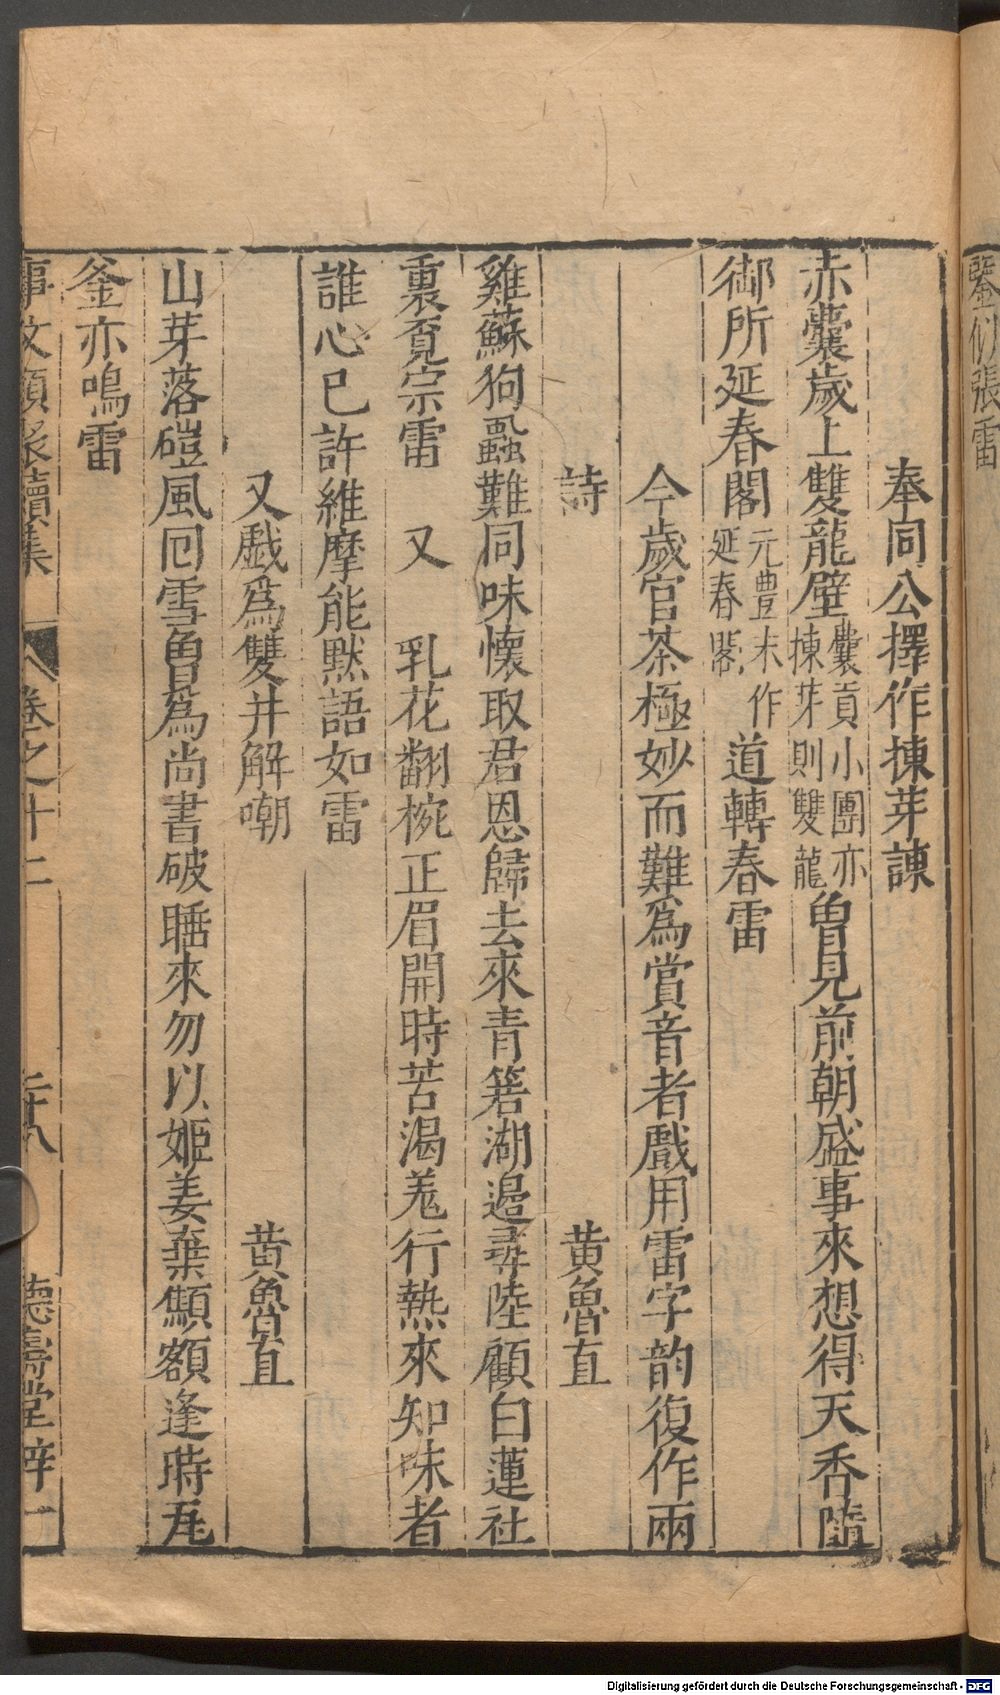 鑒似張雷
奉同公擇作揀芽詠
赤囊歲上雙龍壁囊貢小團亦揀芽則雙龍曽見前朝盛事來想得天香隨
御所延春閣元豊末作延春閣道轉春雷
今歲官茶極妙而難爲賞音者戲用雷字韵復作兩
詩 黄魯直
雞蘇狗蝨難同味懷取君恩歸去來青箬湖邉尋陸顧白蓮社
裏覔宗雷 又 乳花翻椀正眉開時苦渴羌行熱來知味者
誰心已許維摩能黙語如雷
又戲爲雙井解嘲 黄魯直
山芽落磑風回雪曽爲尚書破睡來勿以姬姜棄顦額逢時瓦
釜亦鳴雷
事文類聚續集 卷之十二 二十八 德壽堂梓
Digitalisierung gefördert durch die Deutsche Forschungsgemeinschaft - DFG